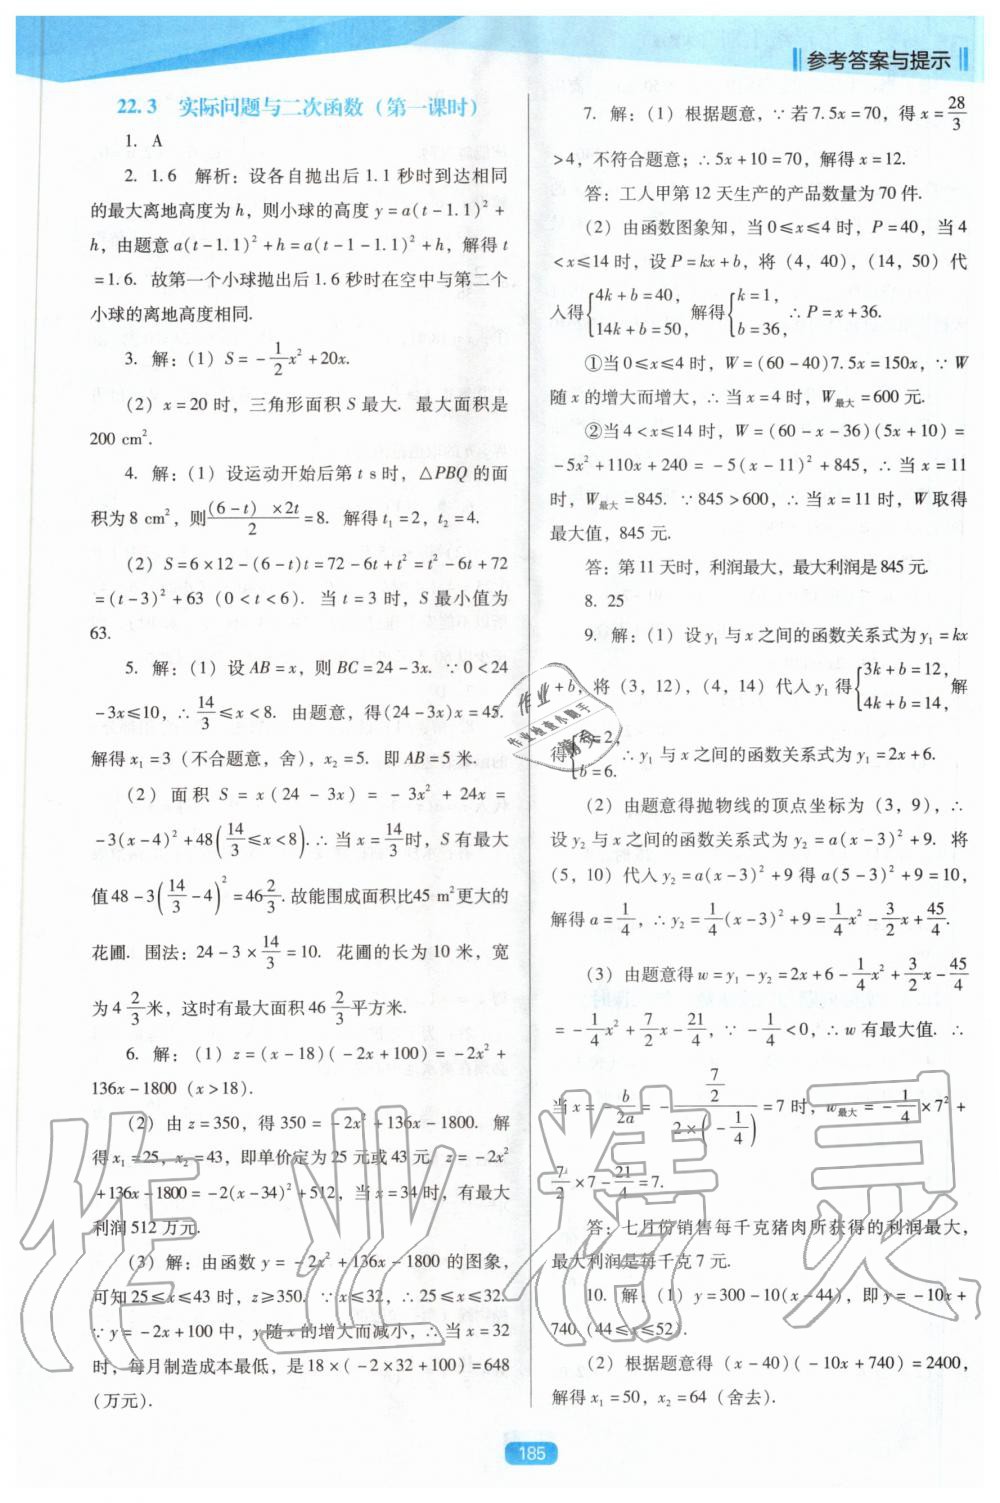 参考答案与提示
22.3 实际问题与二次函数（第一课时）
1. A
2. 1.6 解析：设各自抛出后1.1秒时到达相同
的最大离地高度为h，则小球的高度y=a(t-1.1)²+
h，由题意a(t-1.1)²+h=a(t-1-1.1)²+h，解得t
=1.6. 故第一个小球抛出后1.6秒时在空中与第二个
小球的离地高度相同.
3. 解：(1) S=-1/2x²+20x.
(2) x=20时，三角形面积S最大. 最大面积是
200 cm².
4. 解：(1) 设运动开始后第t s时，△PBQ的面
积为8 cm²，则(6-t)×2t/2=8. 解得t₁=2，t₂=4.
(2) S=6×12-(6-t)t=72-6t+t²=t²-6t+72
=(t-3)²+63 (0<t<6). 当t=3时，S最小值为
63.
5. 解：(1) 设AB=x，则BC=24-3x. ∵0<24
-3x≤10，∴14/3≤x<8. 由题意，得(24-3x)x=45.
解得x₁=3（不合题意，舍），x₂=5. 即AB=5米.
(2) 面积S=x(24-3x)=-3x²+24x=
-3(x-4)²+48(14/3≤x<8). ∴当x=14/3时，S有最大
值48-3(14/3-4)²=46 2/3. 故能围成面积比45 m²更大的
花圃. 围法：24-3×14/3=10. 花圃的长为10米，宽
为4 2/3米，这时有最大面积46 2/3平方米.
6. 解：(1) z=(x-18)(-2x+100)=-2x²+
136x-1800 (x>18).
(2) 由z=350，得350=-2x²+136x-1800. 解
得x₁=25，x₂=43，即单价定为25元或43元 z=-2x²
+136x-1800=-2(x-34)²+512，当x=34时，有最大
利润512万元.
(3) 解：由函数y=-2x²+136x-1800的图象，
可知25≤x≤43时，z≥350. ∵x≤32，∴25≤x≤32.
∵y=-2x+100中，y随x的增大而减小，∴当x=32
时，每月制造成本最低，是18×(-2×32+100)=648
（万元）.
7. 解：(1) 根据题意，∵若7.5x=70，得x=28/3
>4，不符合题意；∴5x+10=70，解得x=12.
答：工人甲第12天生产的产品数量为70件.
(2) 由函数图象知，当0≤x≤4时，P=40，当4
<x≤14时，设P=kx+b，将(4，40)，(14，50)代
入得{4k+b=40，14k+b=50，解得{k=1，b=36，∴P=x+36.
①当0≤x≤4时，W=(60-40)7.5x=150x，∵W
随x的增大而增大，∴当x=4时，W最大=600元.
②当4<x≤14时，W=(60-x-36)(5x+10)=
-5x²+110x+240=-5(x-11)²+845，∴当x=11
时，W最大=845. ∵845>600，∴当x=11时，W取得
最大值，845元.
答：第11天时，利润最大，最大利润是845元.
8. 25
9. 解：(1) 设y₁与x之间的函数关系式为y₁=kx
+b，将(3，12)，(4，14)代入y₁得{3k+b=12，4k+b=14，解
得{k=2，b=6. ∴y₁与x之间的函数关系式为y₁=2x+6.
(2) 由题意得抛物线的顶点坐标为(3，9)，∴
设y₂与x之间的函数关系式为y₂=a(x-3)²+9. 将
(5，10)代入y₂=a(x-3)²+9得a(5-3)²+9=10，
解得a=1/4，∴y₂=1/4(x-3)²+9=1/4x²-3/2x+45/4.
(3) 由题意得w=y₁-y₂=2x+6-1/4x²+3/2x-45/4
=-1/4x²+7/2x-21/4，∵-1/4<0，∴w有最大值. ∴
当x=-b/2a=-(7/2)/(2×(-1/4))=7时，w最大=-1/4×7²+
7/2×7-21/4=7.
答：七月份销售每千克猪肉所获得的利润最大，
最大利润是每千克7元.
10. 解：(1) y=300-10(x-44)，即y=-10x+
740 (44≤x≤52).
(2) 根据题意得 (x-40)(-10x+740)=2400，
解得x₁=50，x₂=64（舍去）.
185
作业
作业检查小助手
精灵
作业精灵